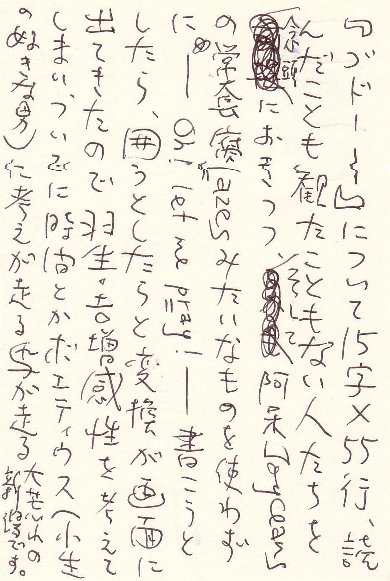 『ゴドー〜』について15字×55行、読
んだことも観たこともない人たちを
念頭におきつつ、そして阿呆
の常套『gazes』みたいなものを使わず
に——Oh! let me pray!——書こうと
したら、囲うとしたらと変換が画面に
出てきたので羽生・吉増感性を考えて
しまい、ついでに時間とかボエティウス(小生
の好きな男)に考えが走る 馬が走る
大荒れの
新潟です。